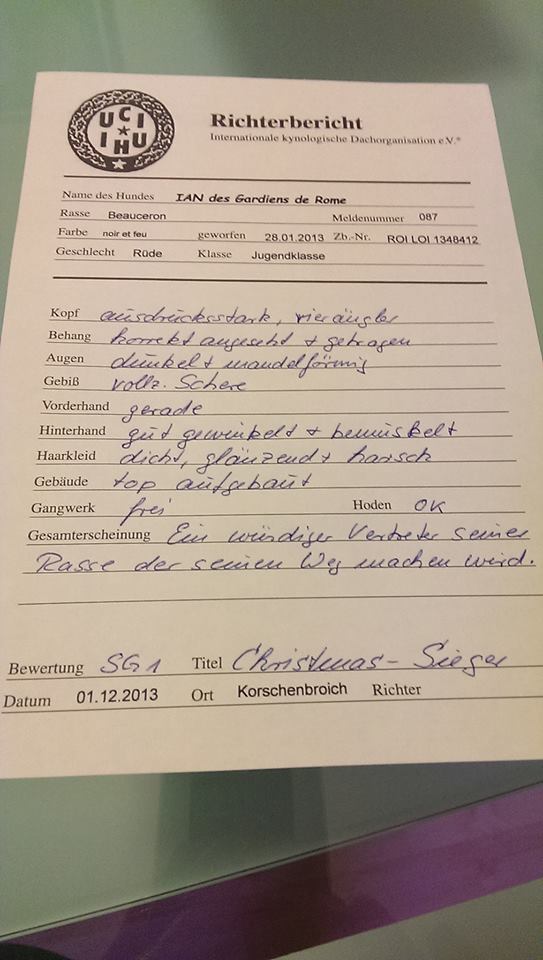 UCI
IHU
Richterbericht
Internationale kynologische Dachorganisation e.V.*
Name des Hundes IAN des Gardiens de Rome
Rasse Beauceron Meldenummer 087
Farbe noir et feu geworfen 28.01.2013 Zb.-Nr. ROI LOI 1348412
Geschlecht Rüde Klasse Jugendklasse
Kopf ausdrucksstark,
Behang korrekt angesetzt + getragen
Augen dunkel + mandelförmig
Gebiß vollz. Schere
Vorderhand gerade
Hinterhand gut gewinkelt + bemuskelt
Haarkleid dicht, glänzend + harsch
Gebäude top aufgebaut
Gangwerk frei Hoden OK
Gesamterscheinung Ein würdiger Vertreter seiner
Rasse der seinen Weg machen wird.
Bewertung SG1 Titel Christmas-Sieger
Datum 01.12.2013 Ort Korschenbroich Richter